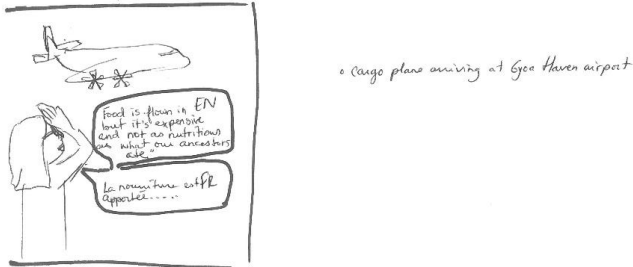 Food is flown in EN
but it's expensive
and not as nutritious
as what our ancestors
ate"
La nourriture est FR
apportée.....
• cargo plane arriving at Gjoa Haven airport